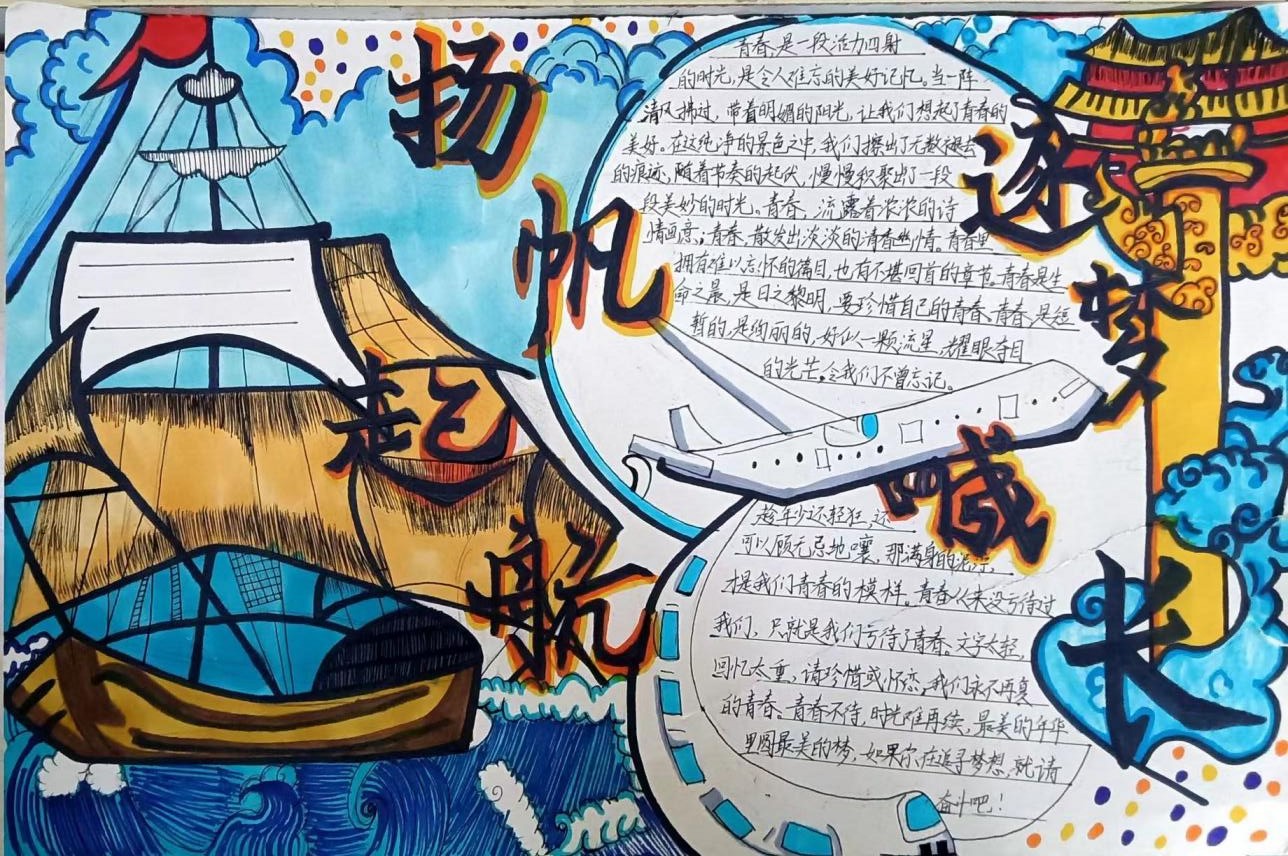 扬帆起航
逐梦成长
青春，是一段活力四射
的时光，是令人难忘的美好记忆。当一阵
清风拂过，带着明媚的阳光，让我们想起了青春的
美好。在这纯净的景色之中，我们擦出了无数褪去
的痕迹，随着节奏的起伏，慢慢积聚出了一段
段美妙的时光。青春，流露着浓浓的诗
情画意；青春，散发出淡淡的清香幽情。青春里
拥有难以忘怀的篇目，也有不堪回首的章节。青春是生
命之晨，是日之黎明，要珍惜自己的青春。青春，是短
暂的，是绚丽的，好似一颗流星，耀眼夺目
的光芒，令我们不曾忘记。
趁年少还轻狂，还
可以顾无忌地嚷，那满身的泥泞，
才是我们青春的模样。青春从来没亏待过
我们，只就是我们亏待了青春。文字太轻，
回忆太重，请珍惜或怀恋，我们永不再复
的青春。青春不待，时光难再续，最美的年华
里圆最美的梦，如果你在追寻梦想，就请
奋斗吧！